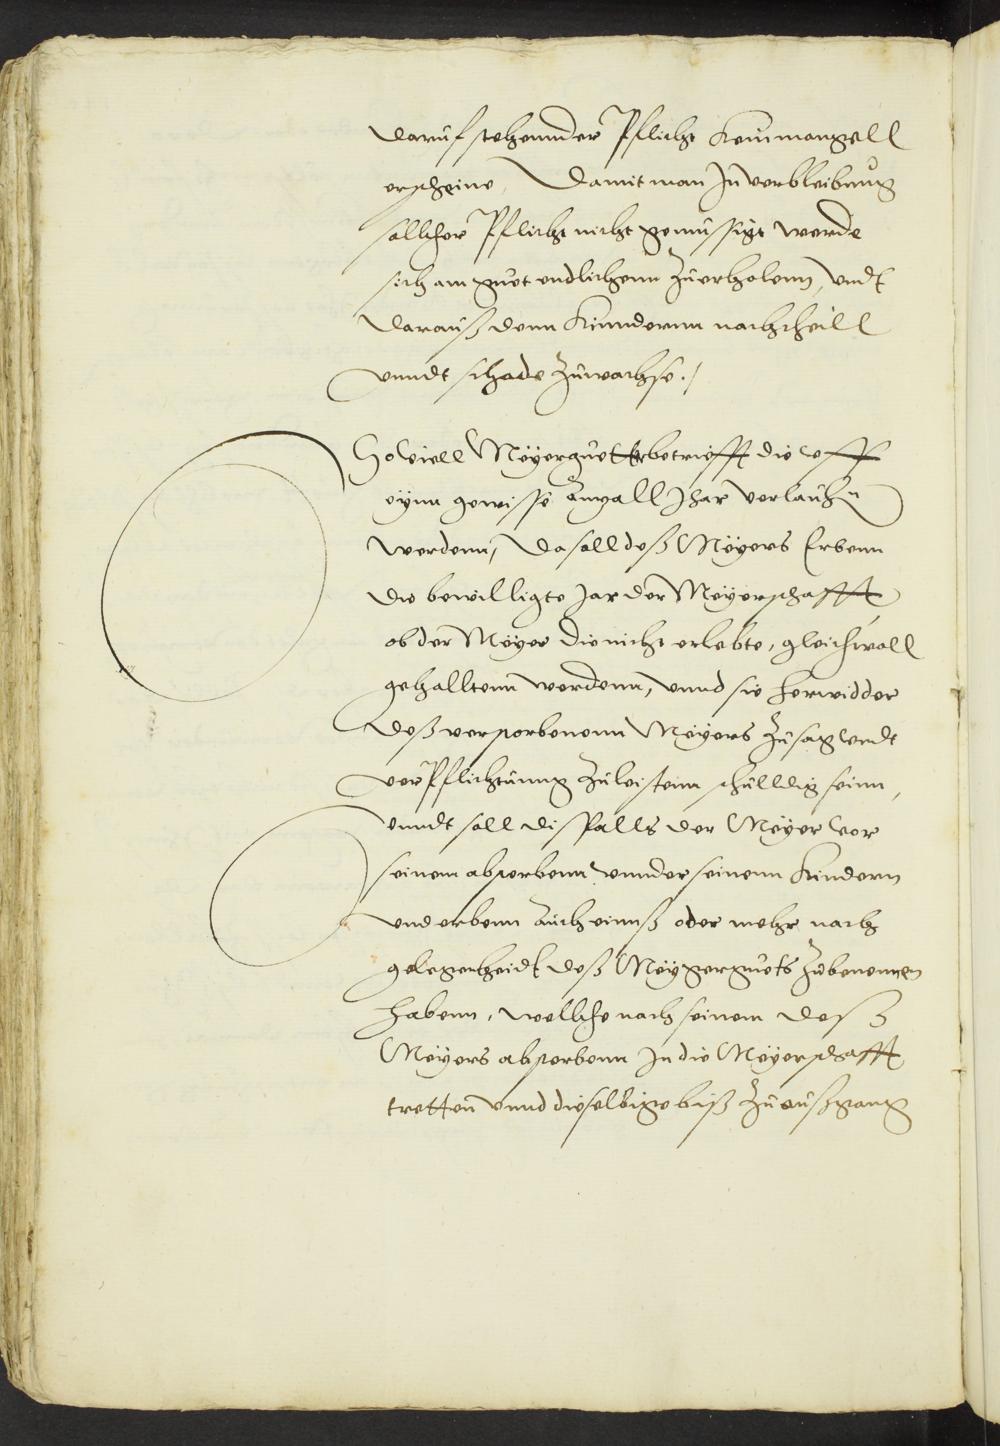 daruf stehennder Pflicht kein mangell
erscheine, damit man In verbleibung
sollicher Pflicht nicht gemussigt werde
sich am guet endlichenn zuerholenn, undt
darauß denn Kinndernn nachtheill
unndt schade zuwachse ./
So viell Meyergüetter betriefft die uff
eynn gewisse anzall Jhar verlauhen
werdenn, Da soll deß Meyers Erbenn
die bewilligte Jar der Meyerschafft
ob der Meyer die nicht erlebte, gleichwoll
gehalltenn werdenn, unnd sie herwidder
deß verstorbenenn Meyers zusag undt
verPflichtunng zuleistenn schulldig seinn,
unndt soll dißfalls der Meyer vor
seinem absterbenn unnder seinenn Kindern
und erbenn auch einnß oder mehr nach
gelegenheidt deß Meyerguets zubenennen
habenn, welliche nach seinem deß
Meyers absterbenn In die Meyerschafft
tretten unnd dieselbige biß zu außgang